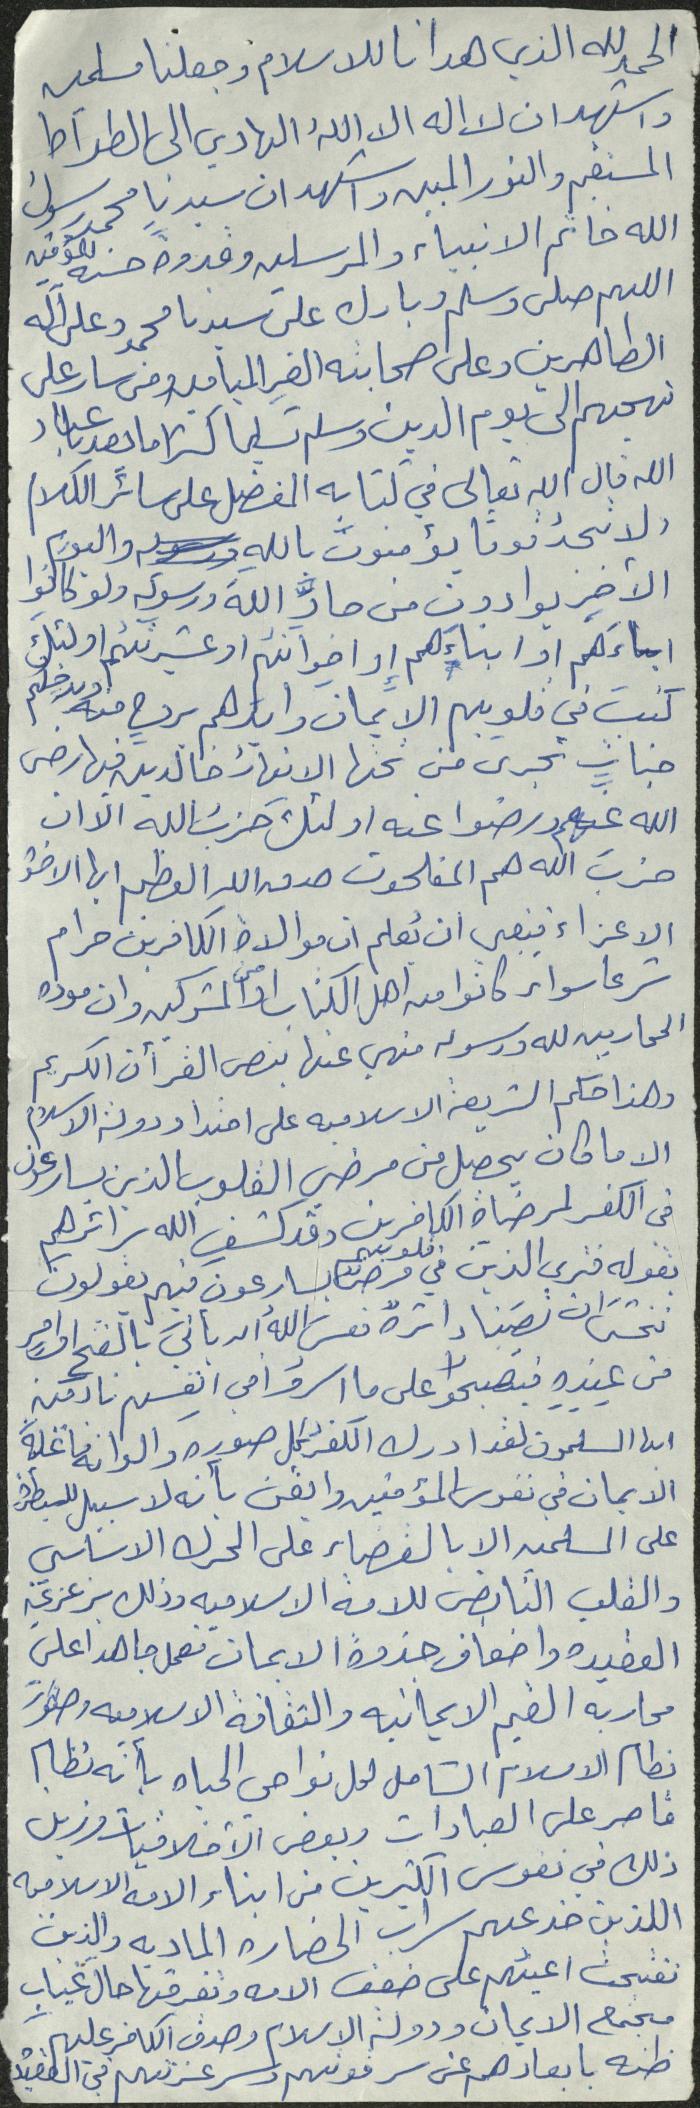 الحمد لله الذي هدانا للاسلام وجعلنا مسلمين
واشهد ان لا اله الا الله الهادي الى الطراط
المستقيم والنور المبين واشهد ان سيدنا محمد رسول
الله خاتم الانبياء والمرسلين وقدوة حسنه للمؤمنين
اللهم صلى وسلم وبارك على سيدنا محمد وعلى آله
الطاهرين وعلى صحابته الغر الميامين ومن سار على
نهجهم الى يوم الدين وسلم تسليما كثيرا اما بعد عباد
الله قال الله تعالى في كتابه المفضل على سائر الكلام
لا تجد قوما يؤمنون بالله واليوم
الأخر يوادون من حادَّ اللهَ ورسولَه ولو كانوا
اباءَهم او ابناءَهم او اخوانَهم او عشيرتَهم اولئِك
كَتبَ في قلوبهم الإيمان وايدهم بروحٍ منه ويدخلهم
جناتٍ تجرى من تحتها الانهارُ خالدين فيها رضى
الله عنهم ورضوا عنه اولئك حزبُ الله الا ان
حزبَ الله هم المفلحون صدق الله العظيم ايها الاخوة
الاعزاء ينبغي ان يُعلم ان موالاة الكافرين حرام
شرعا سواء كانوا من اهل الكتاب او من المشركين وان موده
المحاربين لله ورسوله منهي عنها بنص القرأن الكريم
وهذا حكم الشريعة الاسلاميه على امتداد دولة الاسلام
الا ما كان يحصل من مرضى القلوب الذين يسارعون
في الكفر لمرضاة الكافرين وقد كشف الله سرائرهم
بقوله فترى الذين في قلوبهم مرضٌ يسارعون فيهم يقولون
نخشى ان تصيبنا دائرةٌ فعسى اللهُ ان يأتيَ بالفتح او امر
من عنده فيصبحوا على ما اسروا في انفسهم نادمين
ايها المسلمون لقد ادرك الكفر بكل صوره والوانه فاعليةَ
الايمان في نفوس المؤمنين وايقن بأنه لا سبيل للسيطرة
على المسلمين الا بالقضاء على المحرك الاساسي
والقلب النابض للامة الاسلاميه وذلك بزعزعة
العقيده واضعاف جذوة الايمان فعمل جاهدا على
محاربه القيم الايمانيه والثقافة الاسلاميه وصَوَّرَ
نظام الاسلام الشامل لكل نواحي الحياه بأنه نظام
قاصر على العبادات وبعض الأخلاقيات وزين
ذلك في نفوس الكثيرين من ابناء الامة الاسلاميه
اللذين خدعهم سراب الحضاره الماديه والذين
تفتحت اعينهم على ضعف الامه وتفرقها حال غياب
مجتمع الايمان ودولة الاسلام وصدق الكافر عليهم
ظنه بابعادهم عن سر قوتهم وسر عزتهم في العقيدة